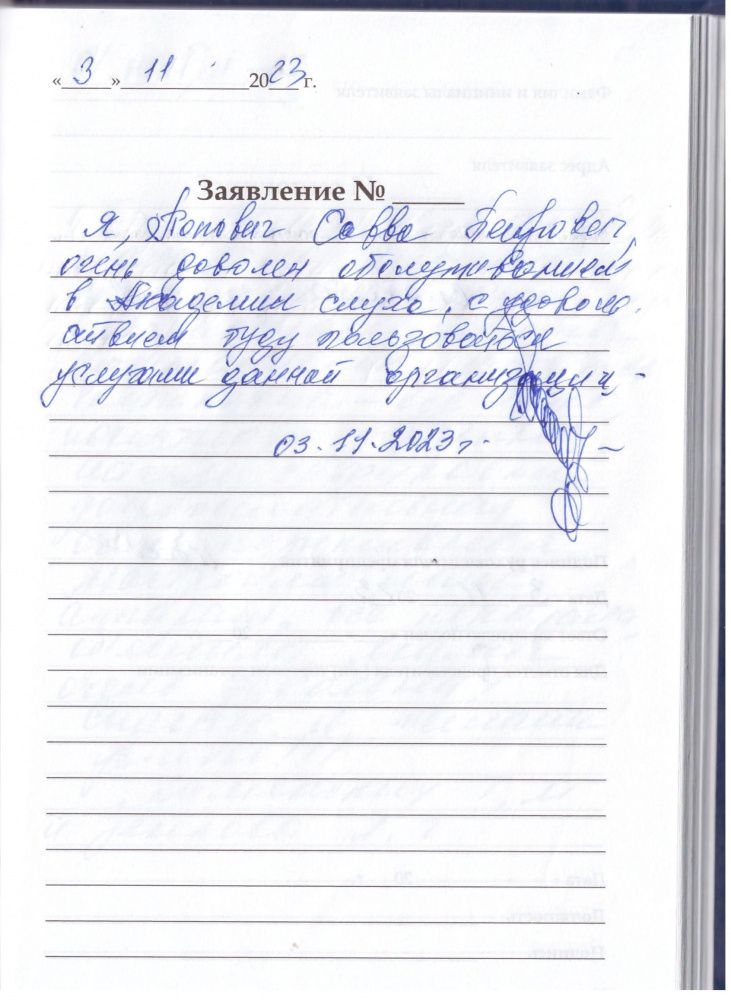 «3» 11 2023 г.
Заявление №
Я, Попович Савва Петрович,
очень доволен обслуживанием
в Академии слуха, с удоволь.
ствием буду пользоваться
услугами данной организации -
03.11.2023г.